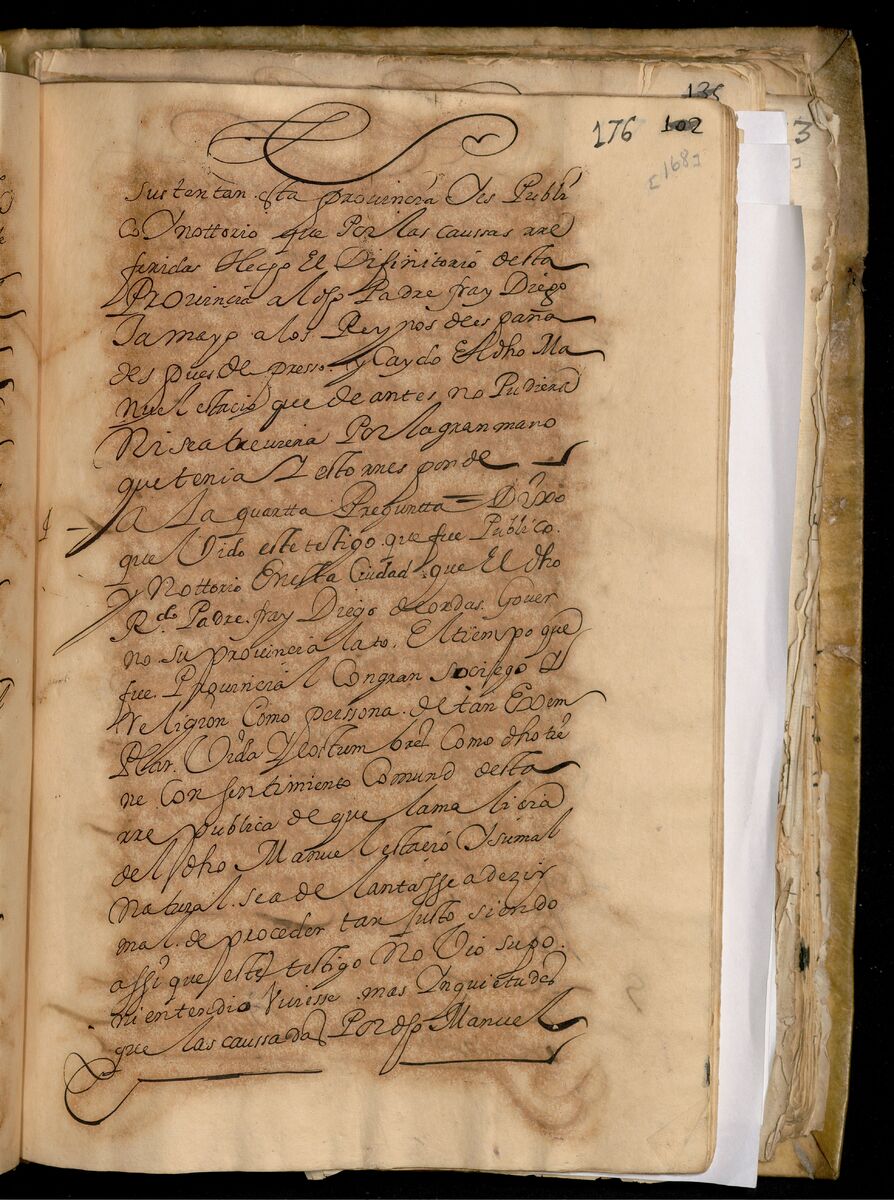 135
176 102
3
[168]
sustentan esta provincia Y es Publi
co Y nottorio que Por las caussas rre
feridas Elegio El Difinitorio desta
Provincia al dho Padre fray Diego
Tamayo a los Reynos de españa
despues de presso y Caydo El dho Ma
nuel estacio que de antes no Pudiera
Ni se atreuiera Por la gran mano
que tenia Y esto rresponde
4 A La quartta Preguntta = Dixo
que Vido este testigo que fue Publico
Y Nottorio En esta Ciudad que El dho
Rdo Padre fray Diego de ordas Gouer
no su provincia todo El tiempo que
fue Prouincial Con gran sociego Y
rreligion Como perssona de tan Exem
Plar Vida Y costumbres Como dho tie
ne Con sentimiento Comund desta
rrepublica de que la malicia
del dho Manuel estacio Y su mal
Natural se adelantasse a dezir
mal de proceder tan justo siendo
assi que este testigo No Vio supo
ni entendio Vuiesse mas Ynquietudes
que las caussadas Por dho Manuel